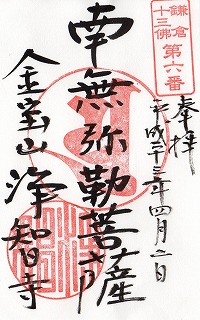 鎌倉
十三佛
第六番
奉拝
平成二十三年四月二日
南無弥勒菩薩
金宝山 浄智寺